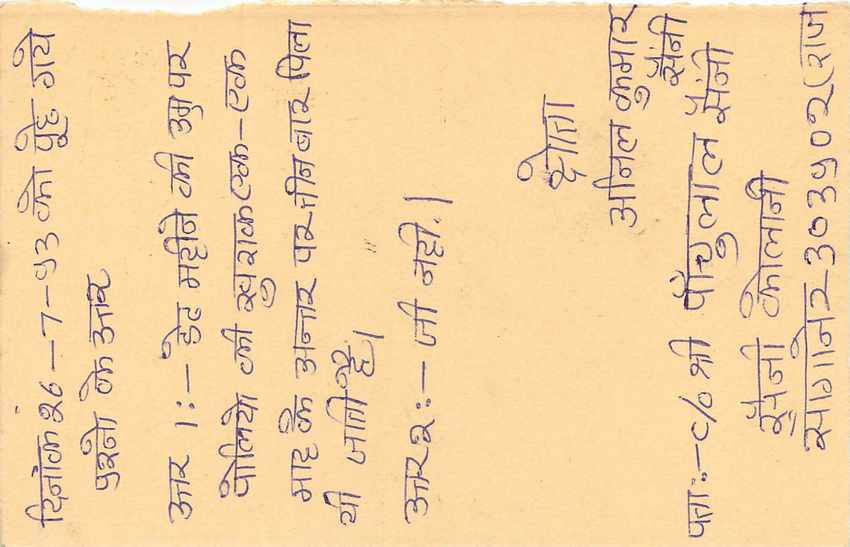 दिनांक 26-7-93 को पुछे गये
प्रश्नो के उत्तर
उत्तर 1:- डेढ महीने की उम्र पर
पोलियो की खुराक एक-एक
माह के अन्तर पर तीन बार पिला
यी जाती है।
उत्तर 2:- जी नही।
श्रोता
अनिल कुमार
सैनी
पता:- c/o श्री पाँचुलाल सैनी
सैनी कोलोनी
सांगानेर 303902 (राज